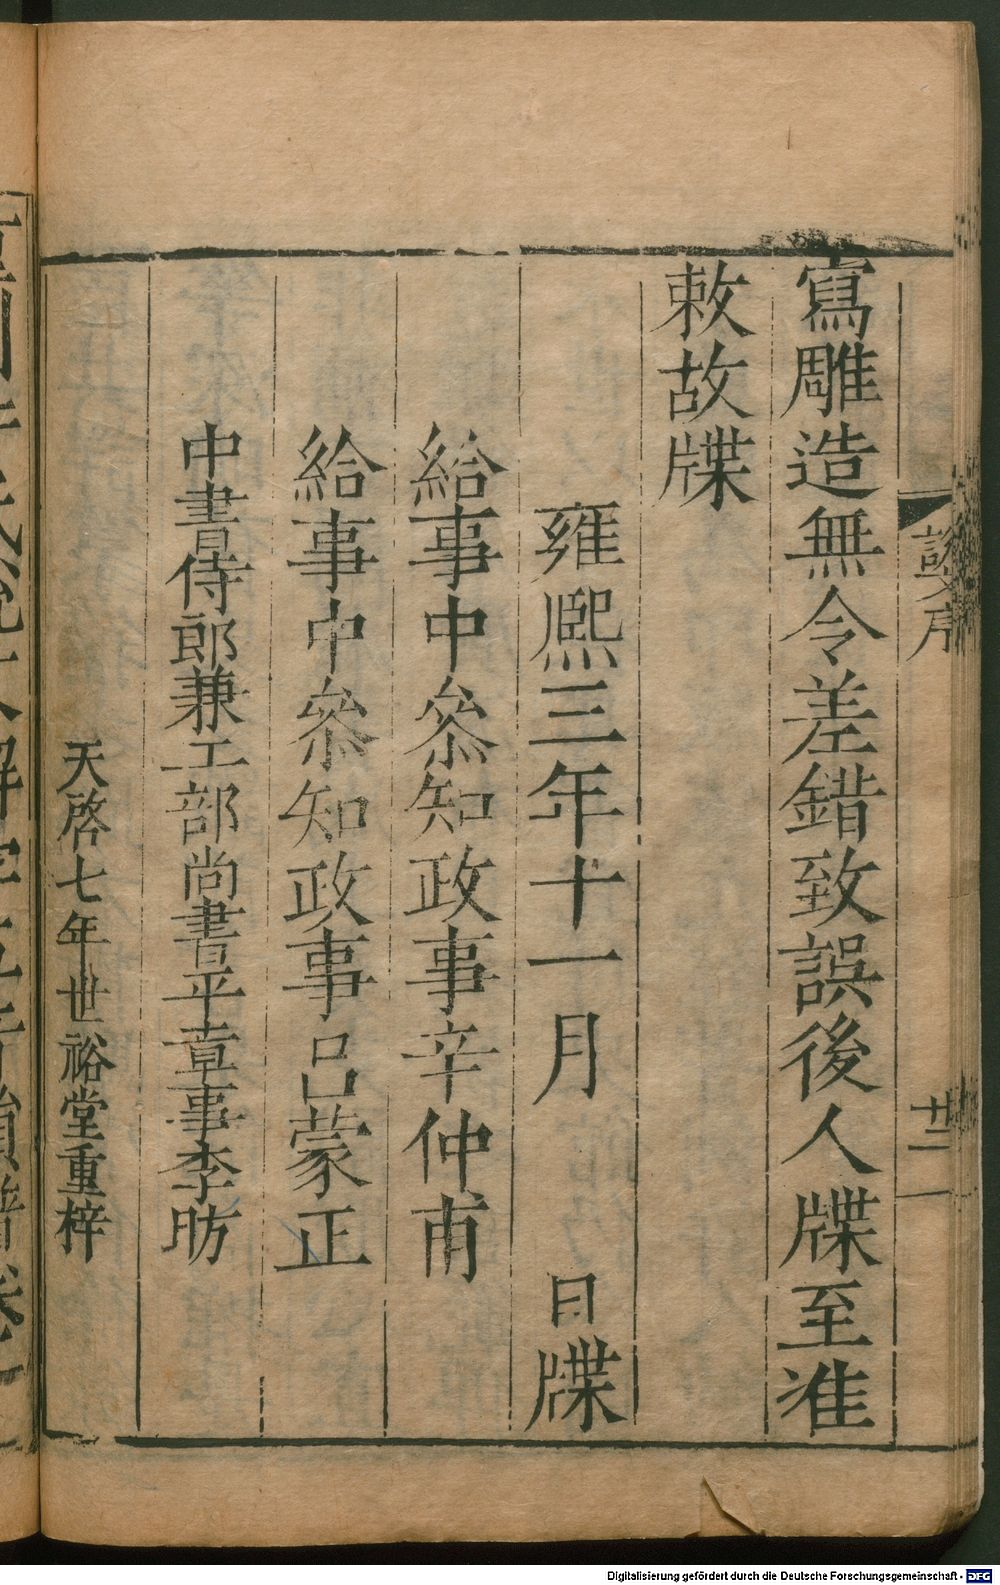 說文序
廿二
寫雕造無令差錯致誤後人牒至准
敕故牒
雍熙三年十一月 日牒
給事中參知政事辛仲甫
給事中參知政事呂蒙正
中書侍郎兼工部尚書平章事李昉
天啓七年世裕堂重梓
Digitalisierung gefördert durch die Deutsche Forschungsgemeinschaft - DFG